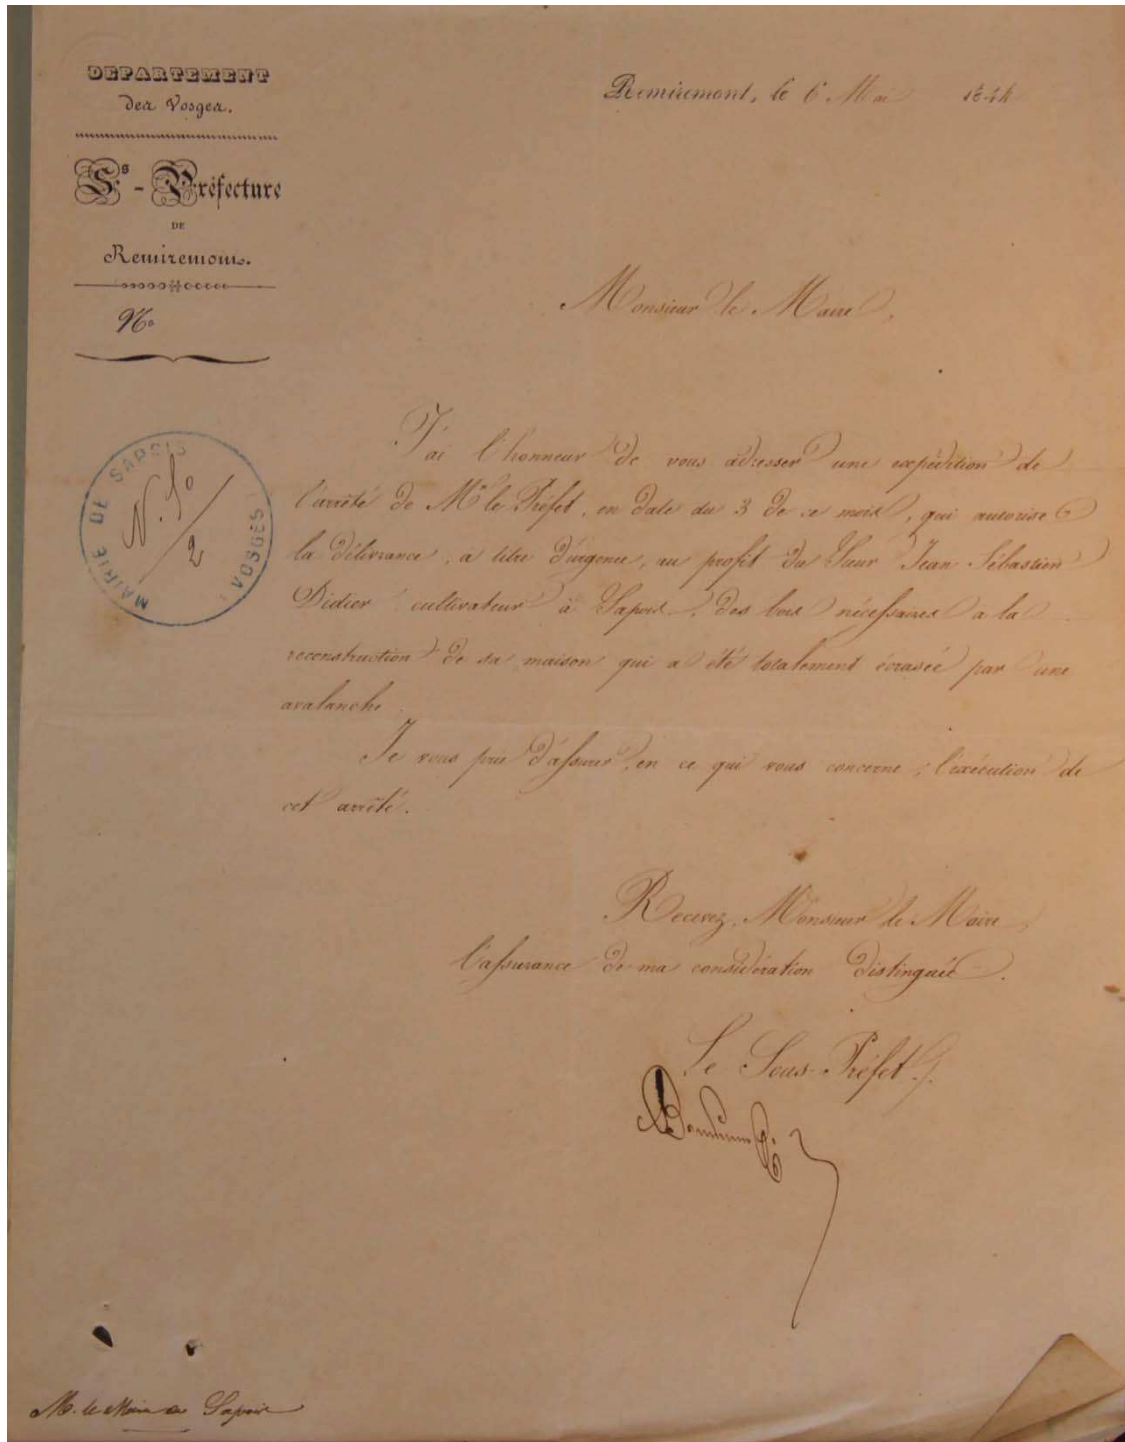 DEPARTEMENT
des Vosges.
Ss - Préfecture
DE
Remiremont.
No
Remiremont, le 6 Mai 1844
Monsieur le Maire,
MAIRIE DE SAPOIS
(VOSGES)
J'ai l'honneur de vous adresser une expédition de
l'arrêté de Mr le Préfet, en date du 3 de ce mois, qui autorise
la délivrance, à titre d'urgence, au profit du Sieur Jean Sébastien
Didier cultivateur à Sapois, des bois nécessaires à la
reconstruction de sa maison qui a été totalement écrasée par une
avalanche.
Je vous prie d'assurer, en ce qui vous concerne, l'exécution de
cet arrêté.
Recevez, Monsieur le Maire,
l'assurance de ma considération distinguée.
Le Sous-Préfet.
M. le Maire de Sapois